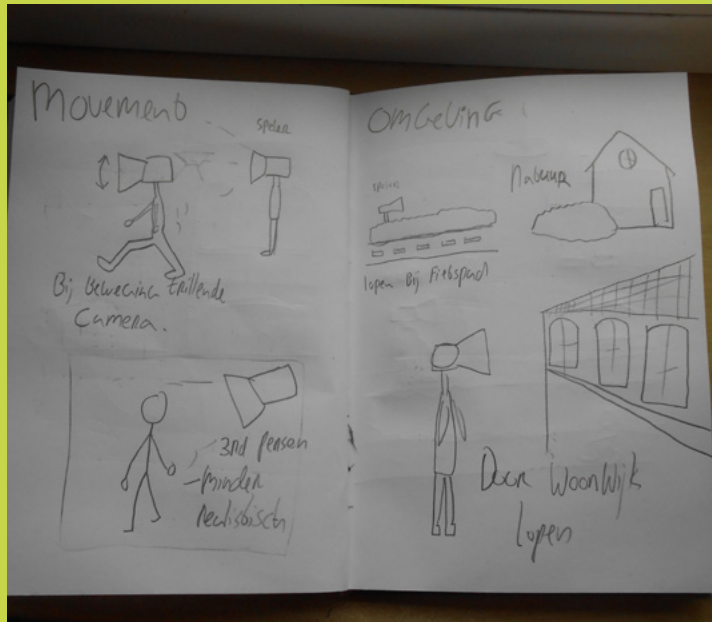 Movement
Speler
Bij beweging trillende
Camera.
3rd person
- minder
realistisch
OMGeving
Natuur
lopen Bij Fietspad
Door Woonwijk
lopen